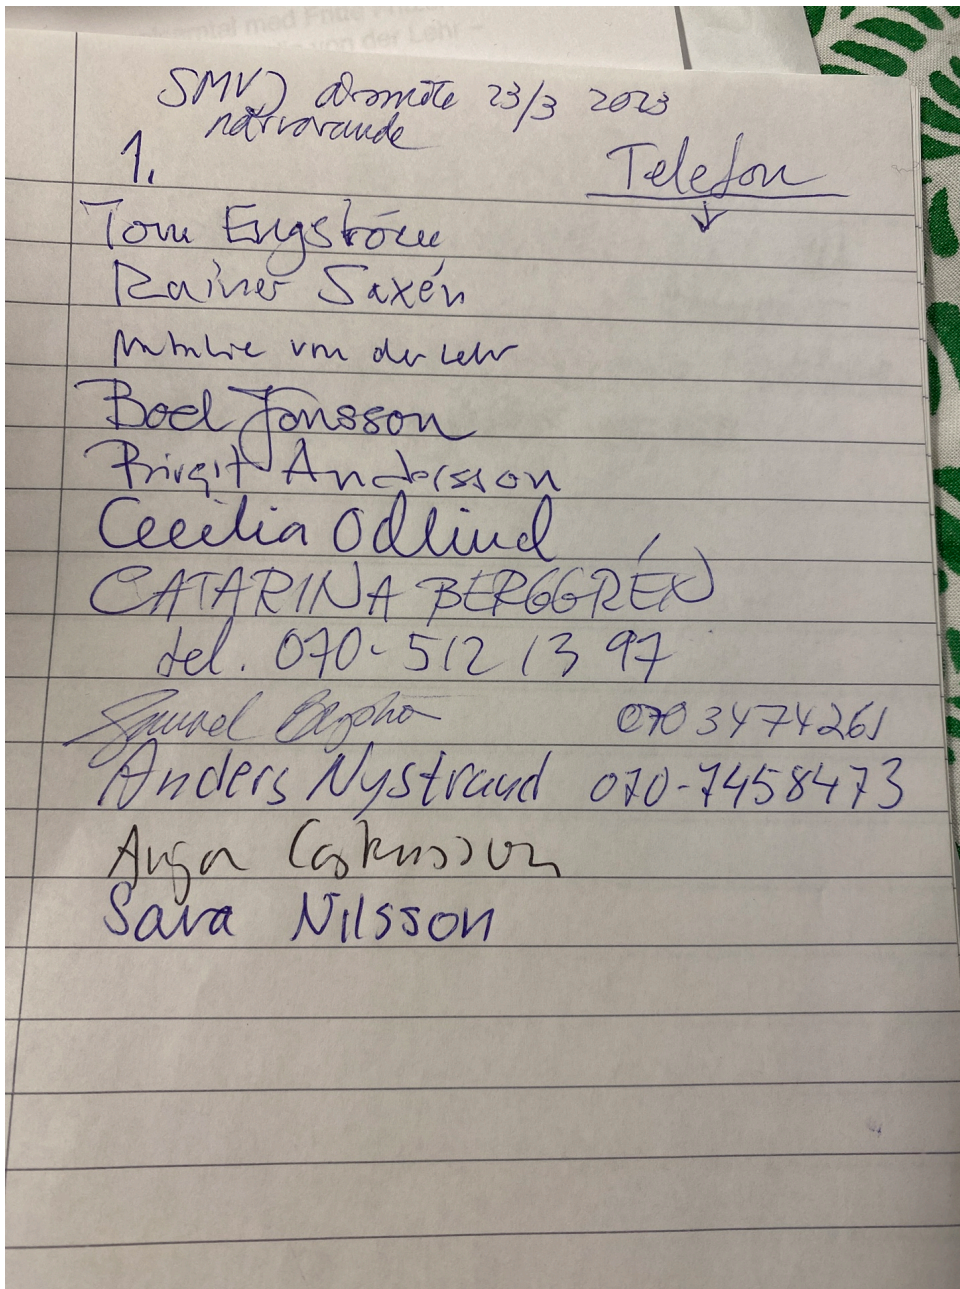 von der Lehr –
SMVJ årsmöte 23/3 2023
närvarande
1.
Telefon
Tom Engström
Rainer Saxén
Nathalie von der Lehr
Boel Jonsson
Birgit Andersson
Cecilia Odlind
CATARINA BERGGRÉN
tel. 070-512 13 97
Samuel 070 3474261
Anders Nystrand 070-7458473
Anja
Sara Nilsson